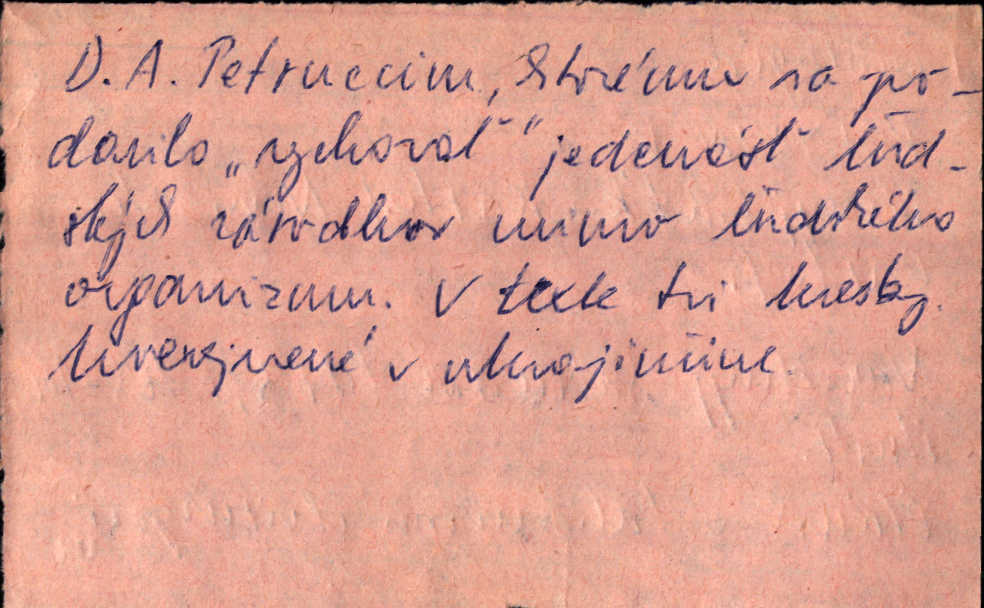 D. A. Petruccim, ktorému sa po-
darilo „vychovať" jedenásť ľud-
ských zárodkov mimo ľudského
organizmu. V texte tri kresby.
Uverejnené v ukrajinčine.